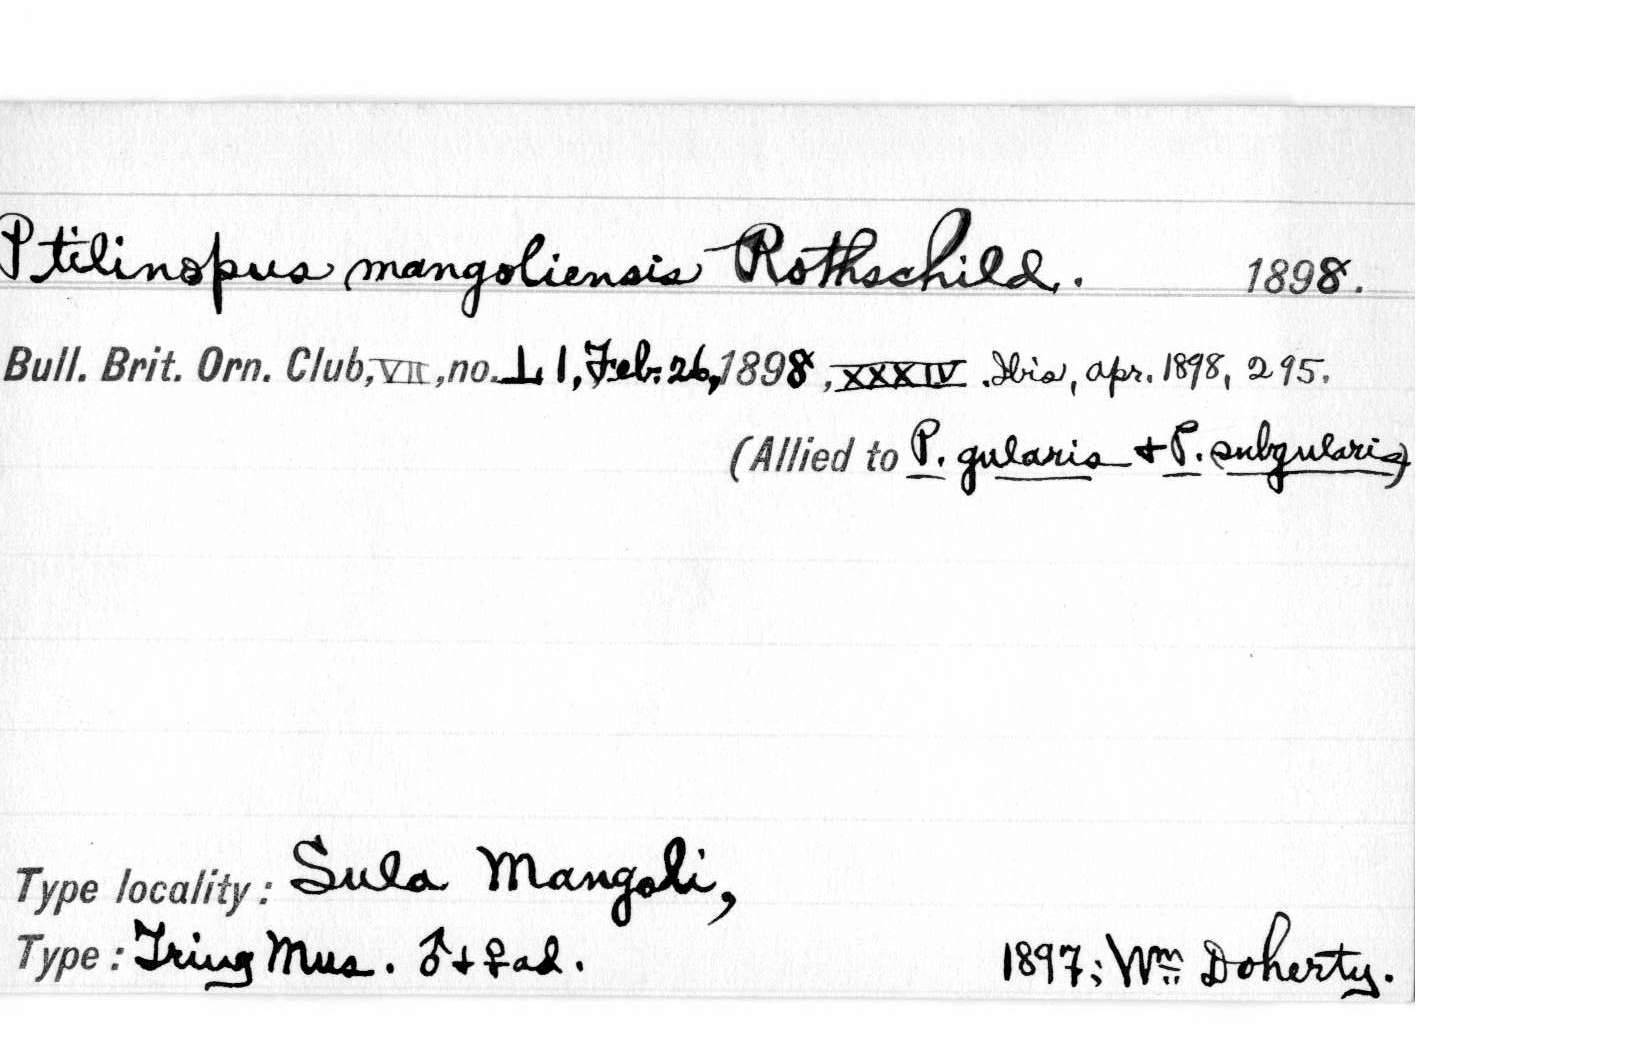 Ptilinopus mangoliensis Rothschild. 1898.
Bull. Brit. Orn. Club, VII, no. L I, Feb. 26, 1898, XXXIV. Ibis, apr. 1898, 295.
(Allied to P. gularis + P. subgularis)
Type locality: Sula Mangoli,
Type: Tring Mus. ♂+♀ad. 1897; Wm Doherty.